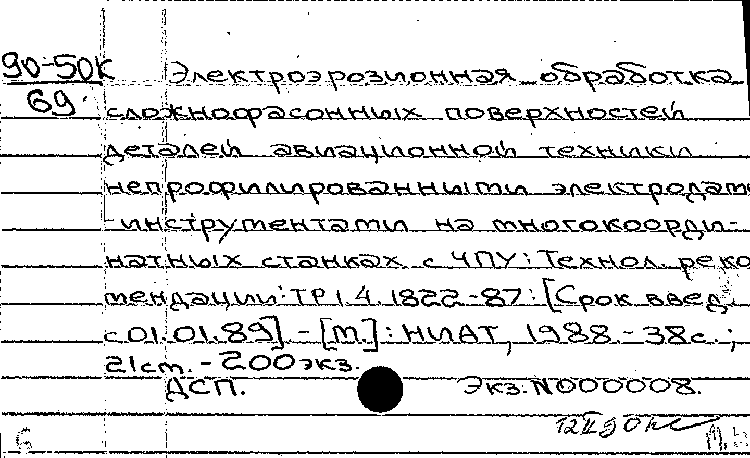 90-50К Электроэрозионная обработка
69. сложнофасонных поверхностей
деталей авиационной техники
непрофилированными электродами
-инструментами на многокоорди-
натных станках с ЧПУ: Технол. реко
мендации: ТР 1.4.1822-87: [Срок введ.
с 01.01.89] - [М.]: НИАТ, 1988.- 38с.;
21см. - 200экз.
ДСП. Экз.N000008.